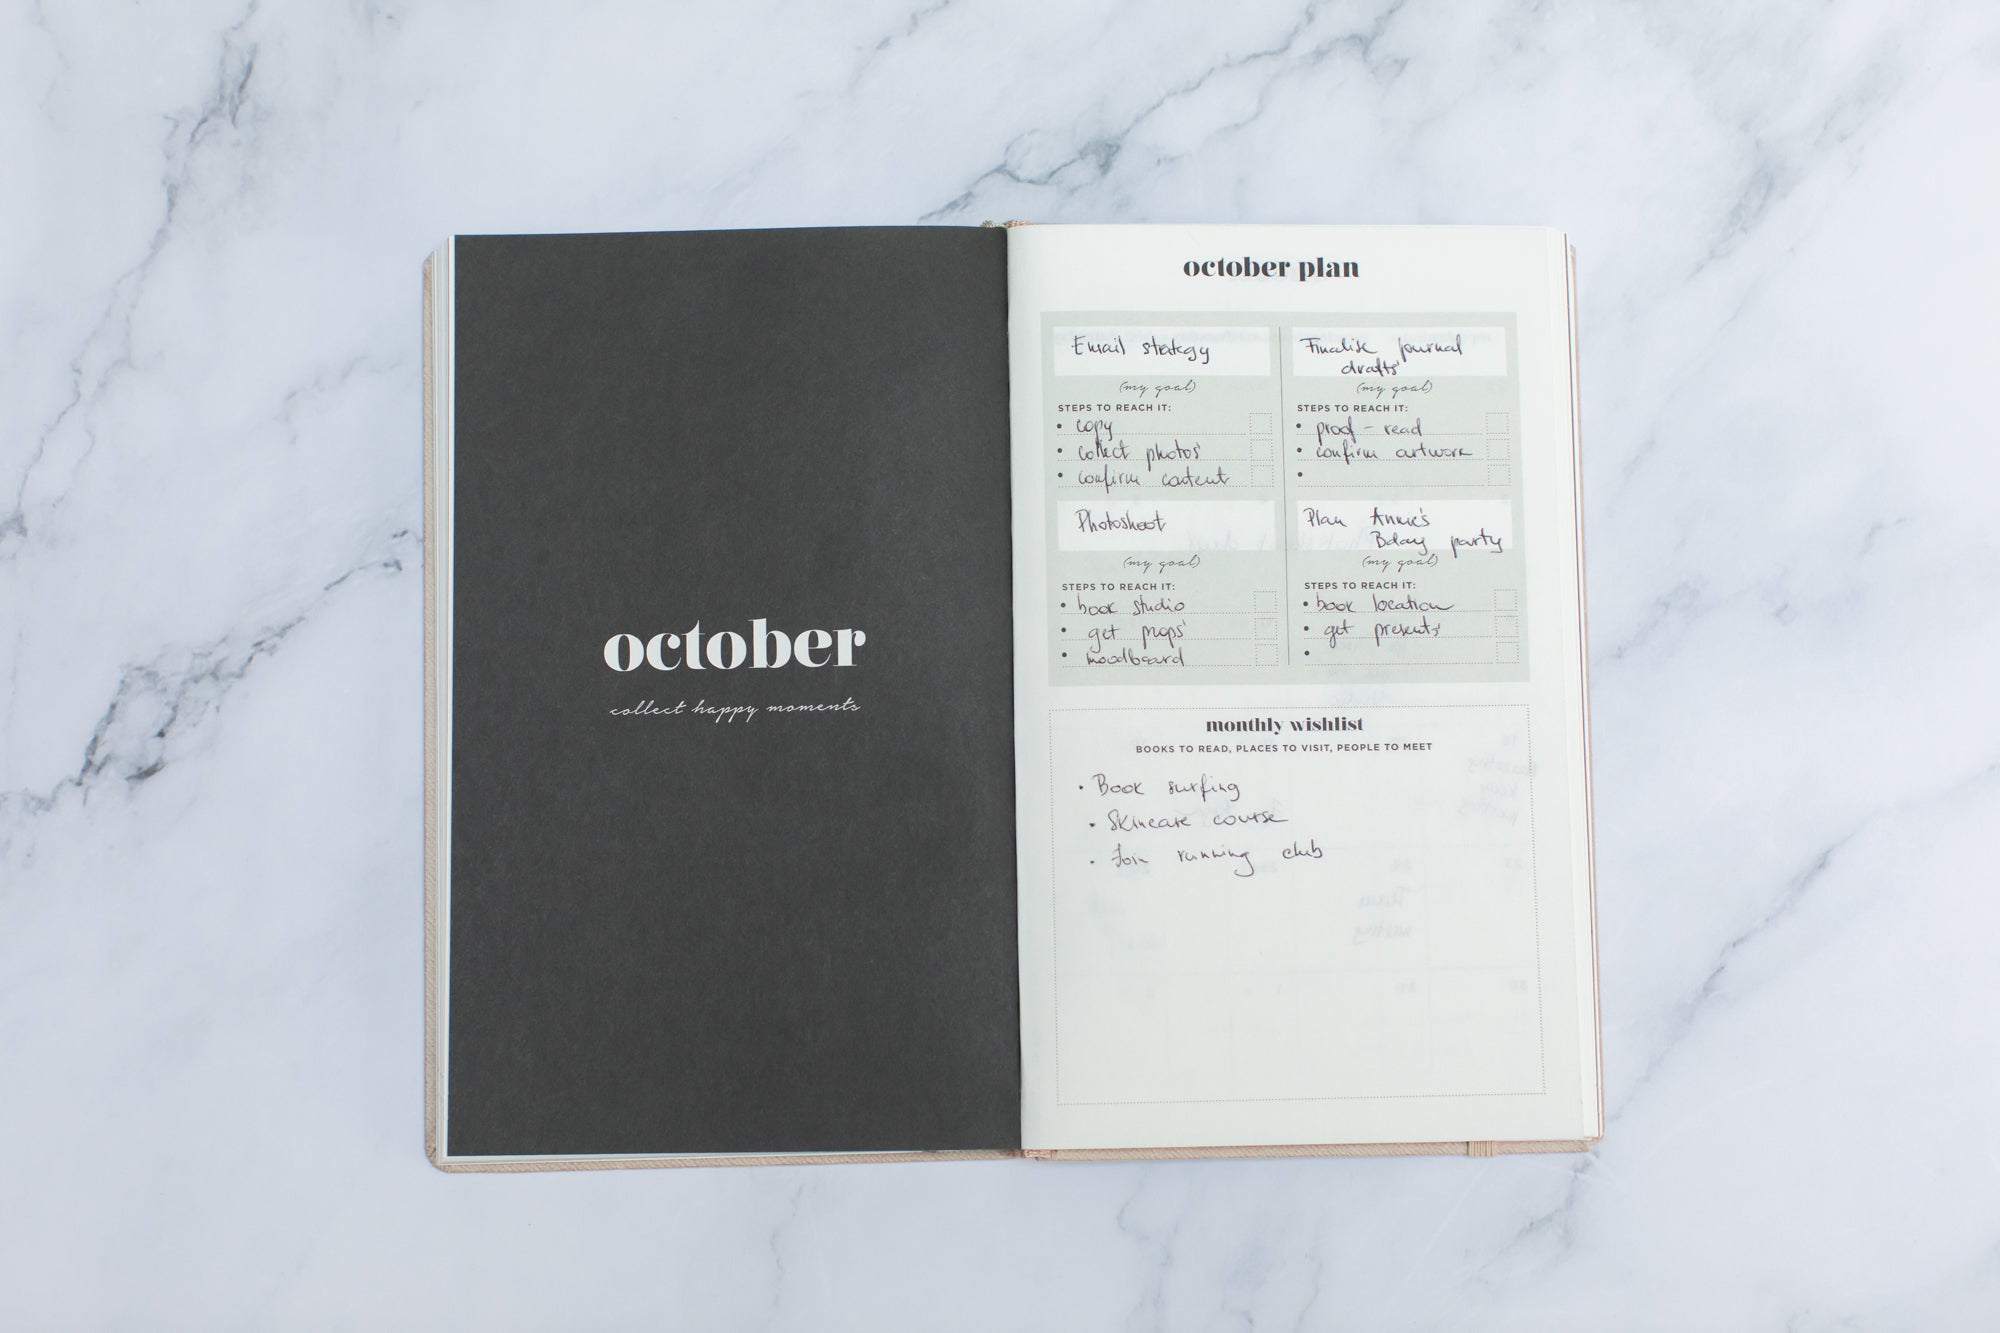 october
collect happy moments
october plan
Email strategy
(my goal)
STEPS TO REACH IT:
• copy
• collect photos
• confirm content
Finalise journal
drafts
(my goal)
STEPS TO REACH IT:
• proof - read
• confirm artwork
•
Photoshoot
(my goal)
STEPS TO REACH IT:
• book studio
• get props
• moodboard
Plan Annie's
Bday party
(my goal)
STEPS TO REACH IT:
• book location
• get presents
•
monthly wishlist
BOOKS TO READ, PLACES TO VISIT, PEOPLE TO MEET
• Book surfing
• Skincare course
• Join running club